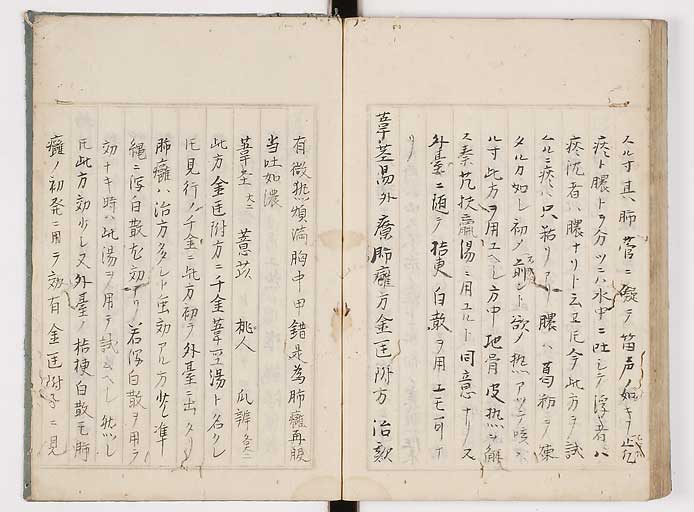 スル寸其ハ肺管ニ礙テ笛声ノ如キヲ
痰ト膿トヲ分ツニハ水中ニ吐シテ浮者ハ
痰沈者ハ膿ナリト云又今此方ヲ試
ムルニ痰ハ只粘リアリ膿ハ葛粉ヲ煉
タル力如し初ノ前ント欲ノ熱アツテ咳
ル寸此方ヲ用エヘし方中地骨皮熱ヲ解
ス秦艽扶羸湯ニ用エルト同意ナリ又
外臺ニ随テ桔梗白散ヲ用エモ可ナ
リ
葦茎湯外療肺癰方金匡附方治欬
有微熱煩満胸中甲錯是為肺癰再服
当吐如濃
葦茎 薏苡 桃人 瓜辨
此方金匡附方ニ千金葦茎湯ト名クし
氏見行ノ千金ニ此方初ヲ外臺ニ出タリ
肺癰ハ治方多シト虫効アル方少し準
縄ニ浮白散ヲ効アリ若浮白散ヲ用テ
効ナキ時ハ此湯ヲ用テ試ムヘし然し
氏此方効少し又外臺ノ桔梗白散モ肺
癰ノ初発ニ用テ効有金匡附子ニ見